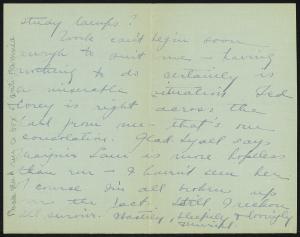 study lamps?
Work can't begin soon
enough to suit me - having
nothing to do certainly is
a miserable situation. Ted
Corey is right across the
hall from me - that's one
consolation. Glad Lyall says
is more hopeless
than ever - I haven't seen her
Of course I'm all broken up
over the fact. Still I reckon
I'll survive. Hastily, sleepily & lovingly